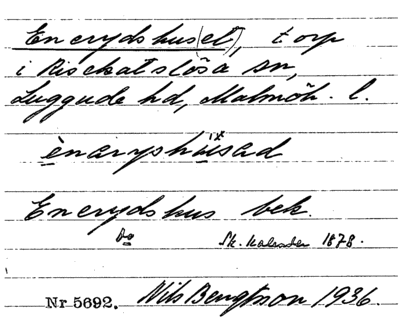 Enerydshus(et), torp
i Risekatslösa sn,
Luggude hd, Malmöh. l.
ènaryshùsad
Enerydshus bek.
Do Sk. Kalender 1878.
Nr 5692. Nils Bengtsson 1936.